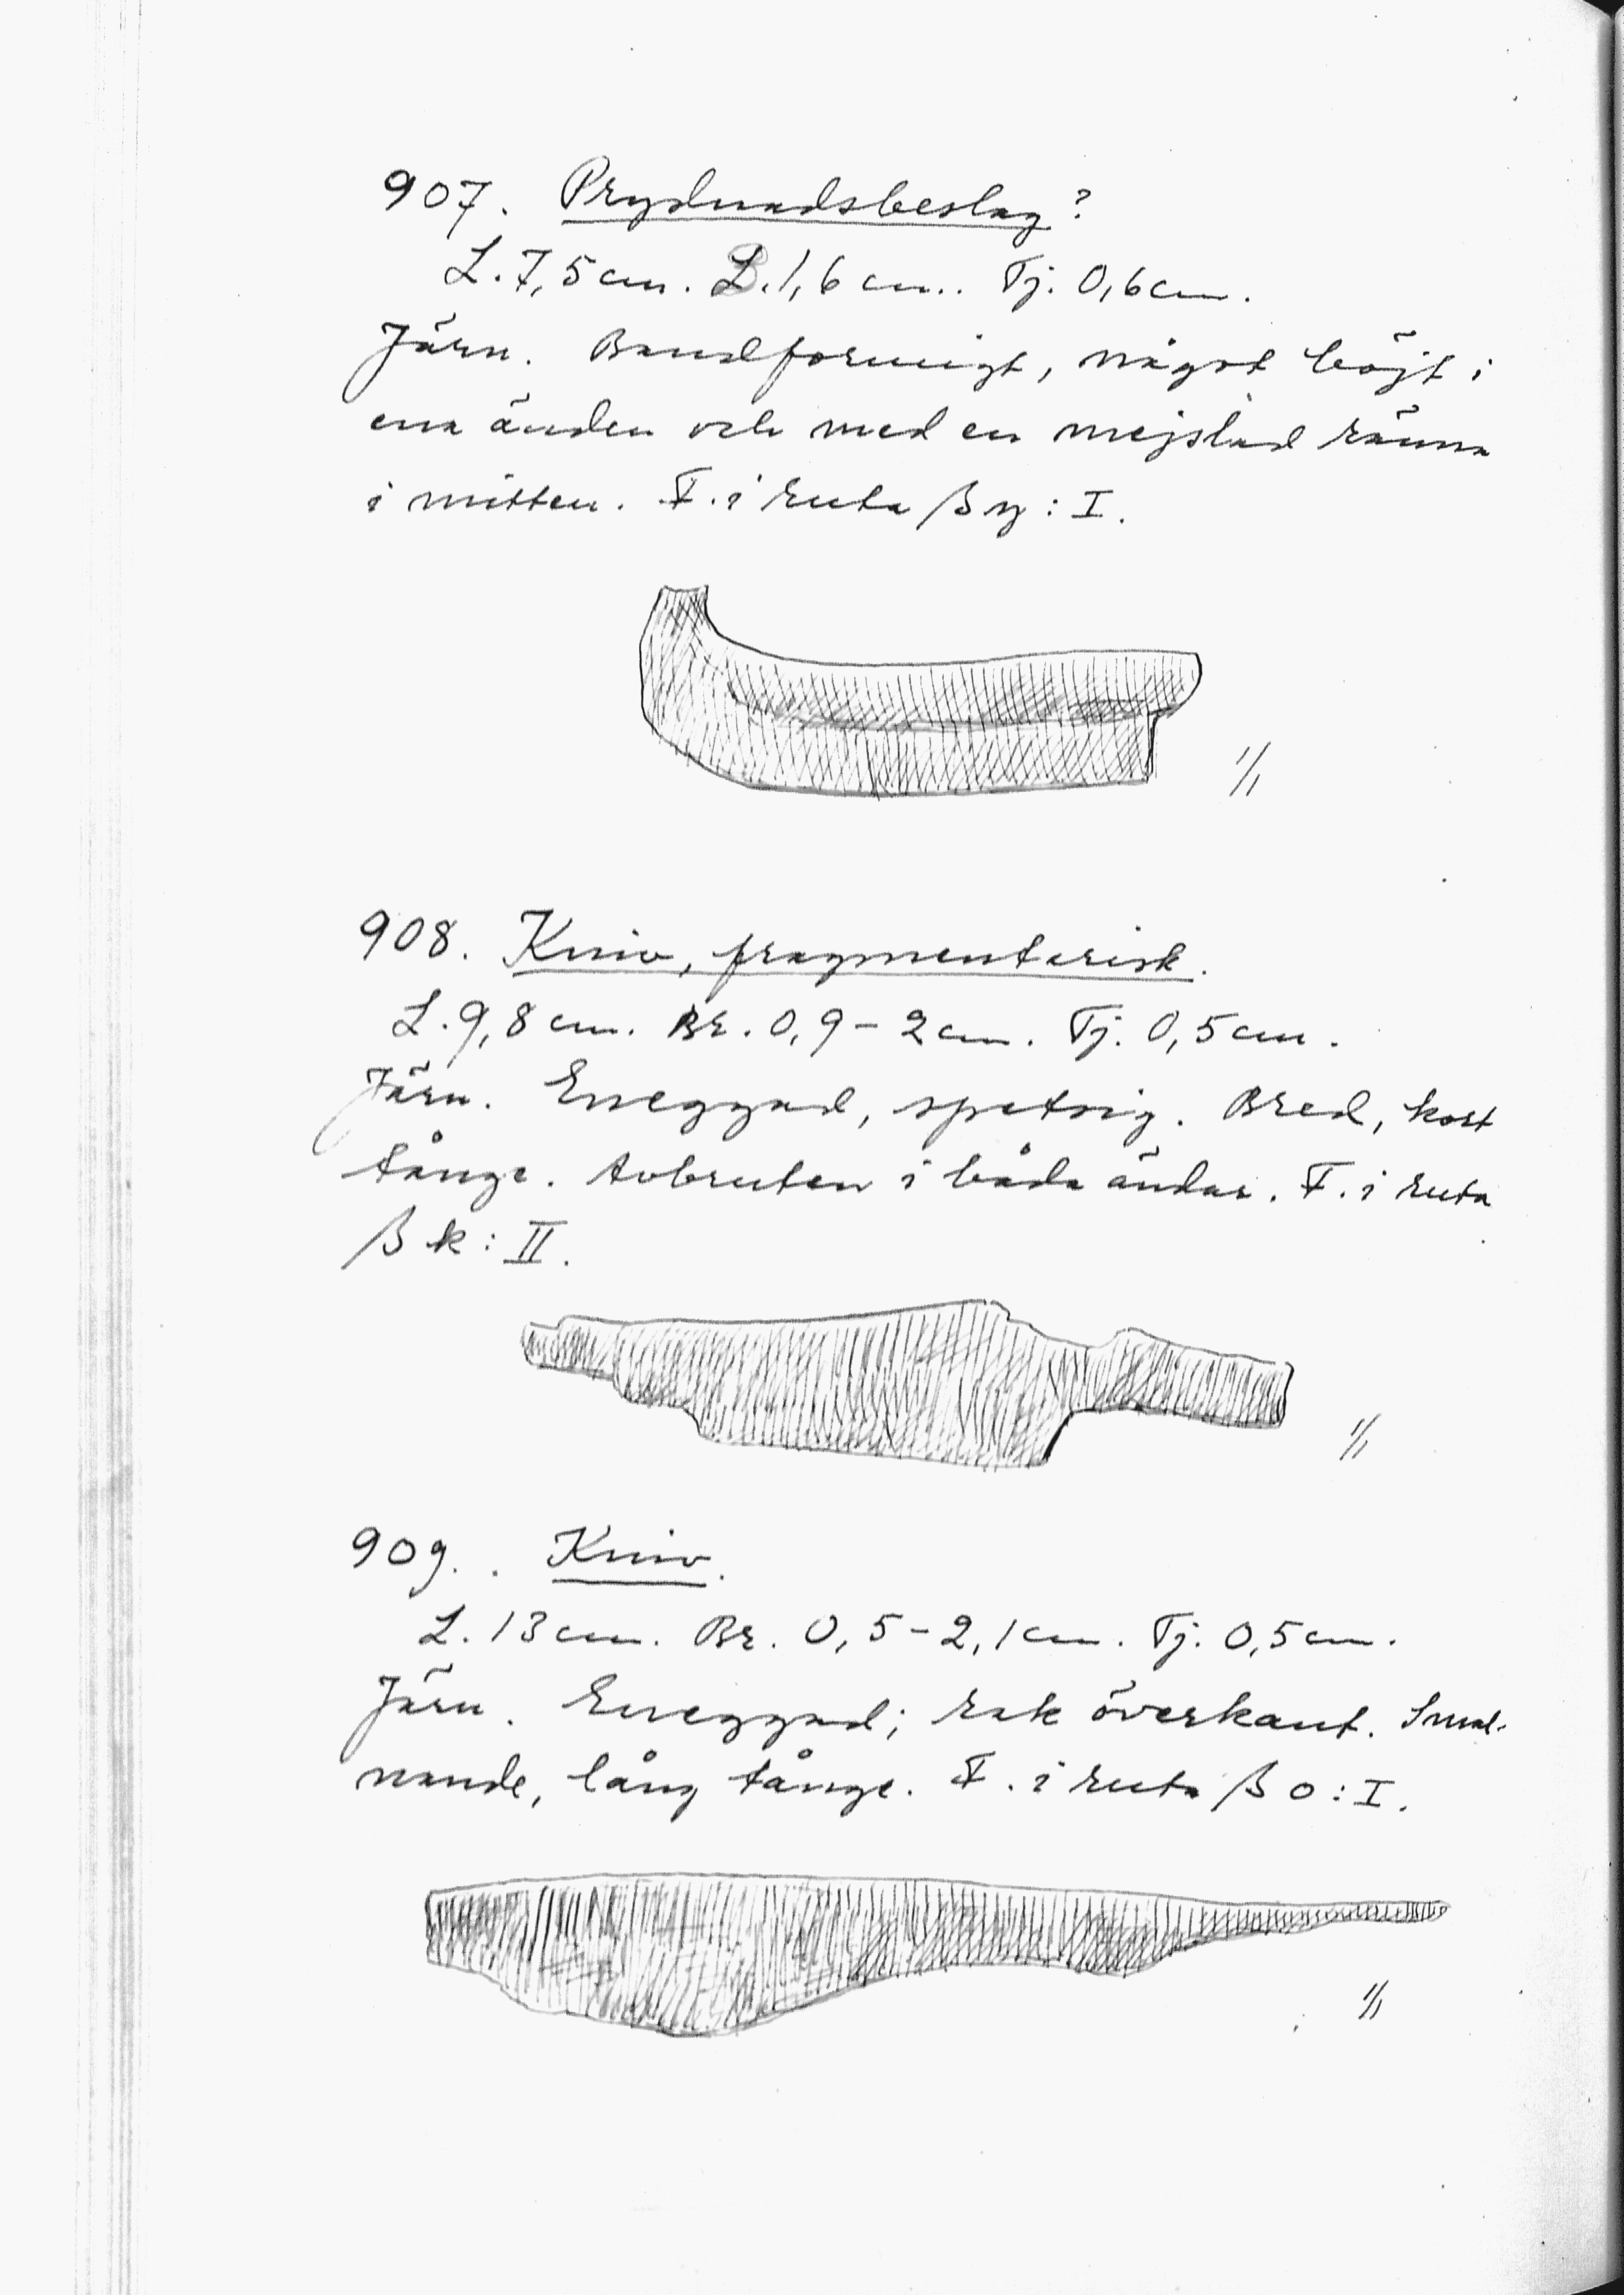 907. Prydnadsbeslag?
L. 7,5 cm. B. 1,6 cm.. Tj. 0,6 cm.
Järn. Bandformigt, något böjt i
ena änden och med en mejslad ränna
i mitten. F. i ruta β y : I.
1/1
908. Kniv, fragmentarisk.
L. 9,8 cm. Br. 0,9 - 2 cm. Tj. 0,5 cm.
Järn. Eneggad, spetsig. Bred, kort
tånge. Avbruten i båda ändar. F. i ruta
β k : II.
1/1
909. . Kniv.
L. 13 cm. Br. 0,5 - 2,1 cm. Tj. 0,5 cm.
Järn. Eneggad; rak överkant. Smal-
nande, lång tånge. F. i ruta β o : I.
1/1